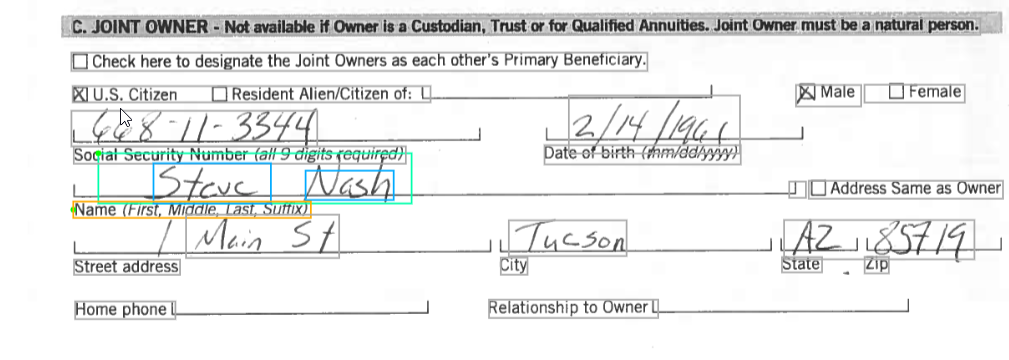 C. JOINT OWNER - Not available if Owner is a Custodian, Trust or for Qualified Annuities. Joint Owner must be a natural person.
Check here to designate the Joint Owners as each other's Primary Beneficiary.
U.S. Citizen Resident Alien/Citizen of: Male Female
668-11-3344 2/14/1961
Social Security Number (all 9 digits required) Date of birth (mm/dd/yyyy)
Steve Nash Address Same as Owner
Name (First, Middle, Last, Suffix)
1 Main St Tucson AZ 85719
Street address City State Zip
Home phone Relationship to Owner